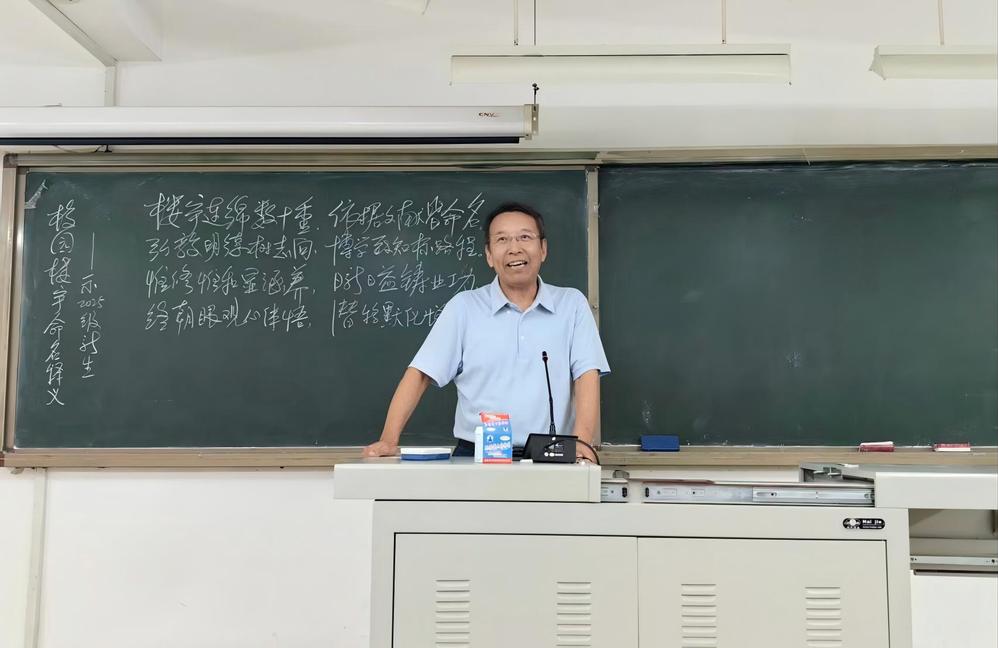 校园楼宇命名释义
——示2025级新生
楼宇连绵数十重，依据文献皆命名
弘毅明德树志向，博学致知标路程。
惟修惟和显涵养，日新日益铸业功
终朝眼观心体悟，潜移默化
Mai jie